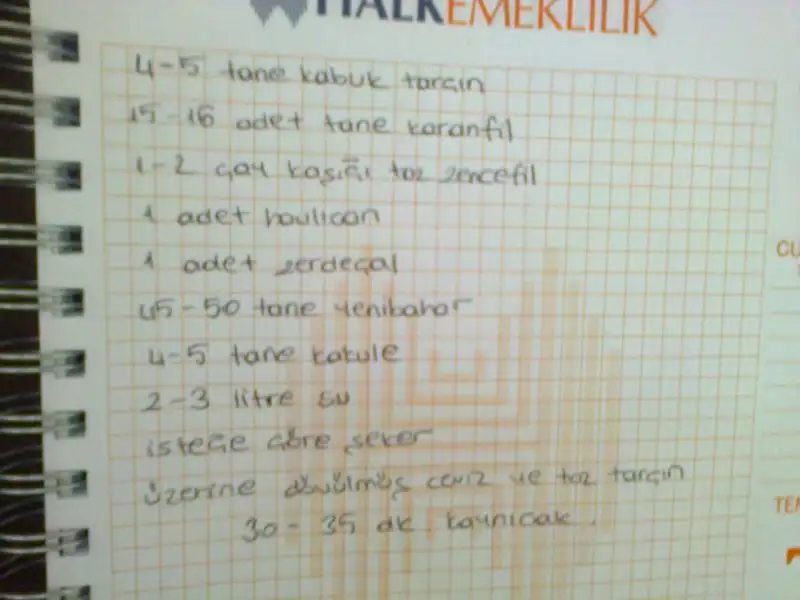 HALKEMEKLİLİK
4-5 tane kabuk tarçın
15-16 adet tane karanfil
1-2 çay kaşığı toz zencefil
1 adet havlıcan
1 adet zerdeçal
45-50 tane yenibahar
4-5 tane kakule
2-3 litre su
isteğe göre şeker
üzerine dövülmüş ceviz ve toz tarçın
30-35 dk. kaynıcak.
CU
TE